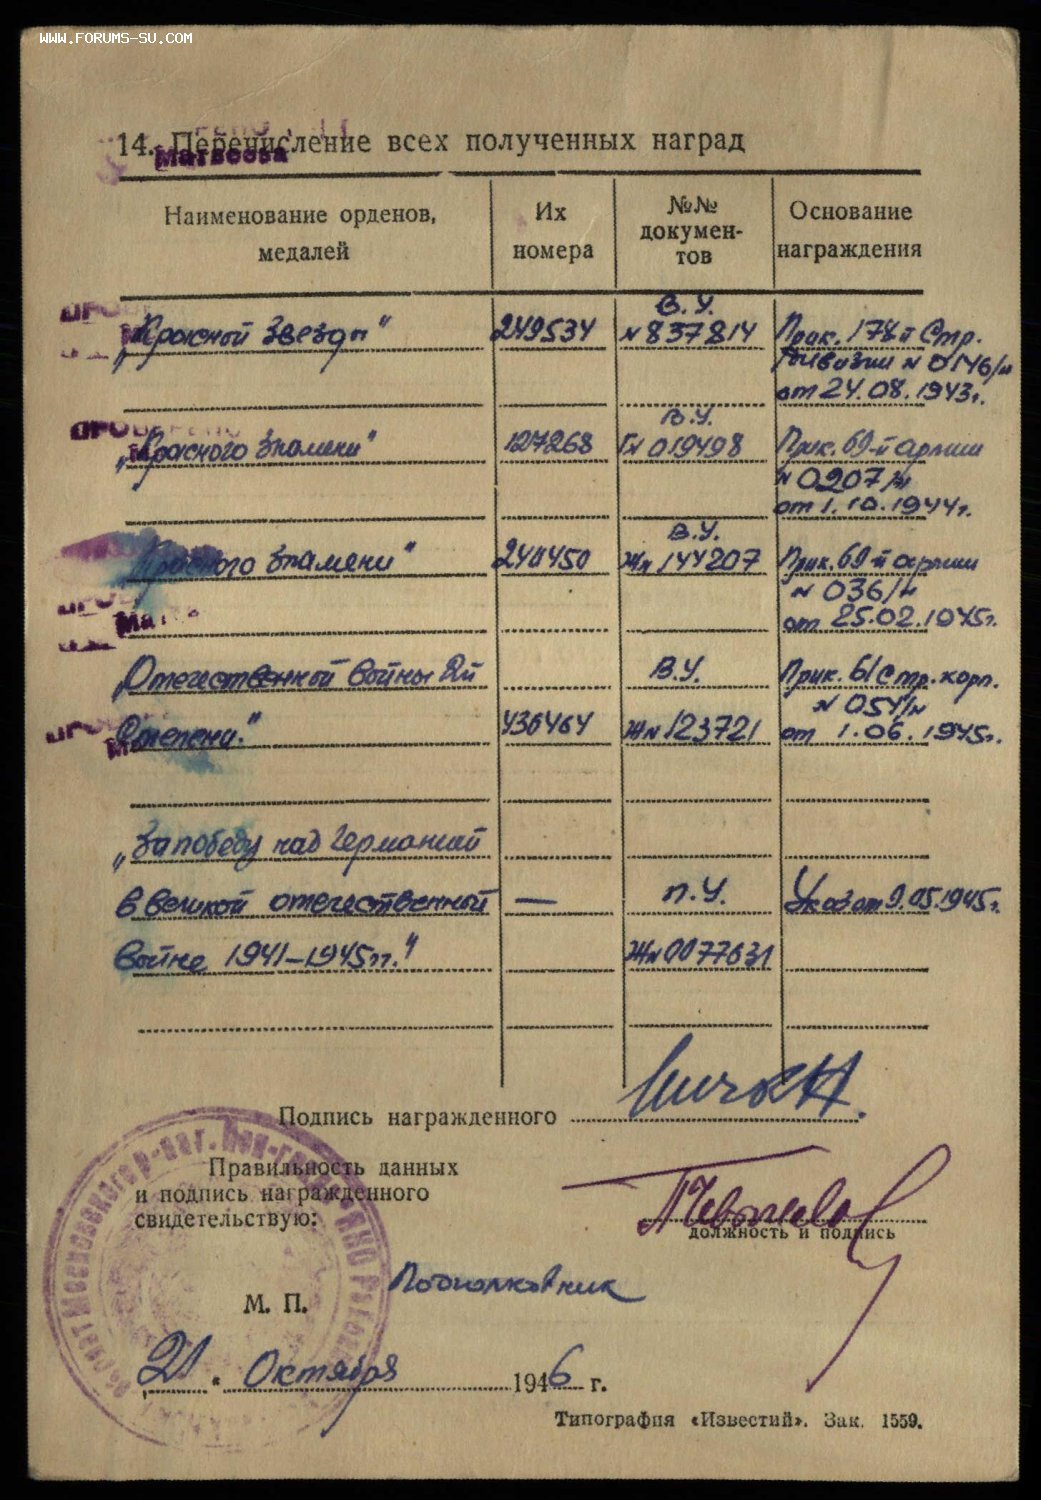 WWW.FORUMS-SU.COM
14. Перечисление всех полученных наград
Матвеева
Наименование орденов, медалей
Их номера
№№ докумен-тов
Основание награждения
„Красной Звезды“ 249534 В.У. №837814 Прик. 174й Стр.
дивизии № 0146/н
от 24.08.1943г.
ПРОВЕРЕНО
„Красного Знамени“ 127268 В.У. 019498 Прик. 69-й армии
№ 0207/н
от 1.10.1944г.
„Красного Знамени“ В.У. Жn 144207 Прик. 69-й армии
№ 036/н
от 25.02.1945г.
„Отечественной Войны 2й В.У. Прик. 61 Стр. корп.
№ 054/н
Степени.“ 436464 Жn 123721 от 1.06.1945г.
„За победу над Германией
в великой отечественной — П.У. Указ от 9.05.1945г.
Войне 1941-1945гг.“ Жn 0077631
Подпись награжденного
Правильность данных
и подпись награжденного
свидетельствую:
должность и подпись
Подполковник
М. П.
21 “ Октября 1946 г.
Типография «Известий». Зак. 1559.